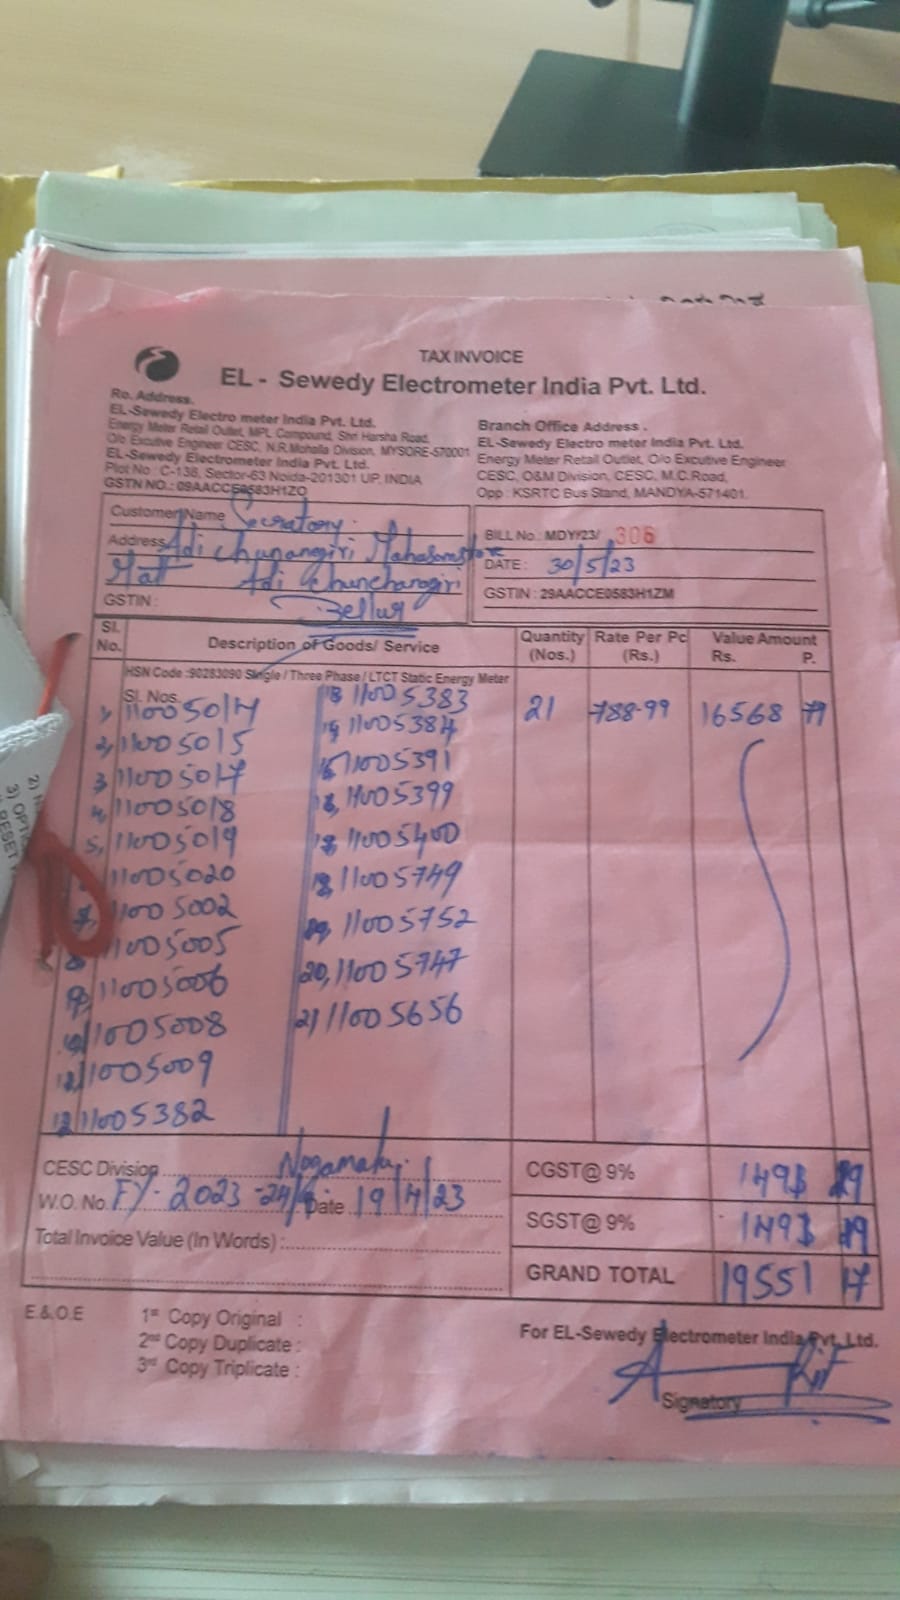 TAX INVOICE
EL - Sewedy Electrometer India Pvt. Ltd.
Ro. Address.
EL-Sewedy Electro meter India Pvt. Ltd.
Energy Meter Retail Outlet, MPL Compound, Shri Harsha Road,
O/o Excutive Engineer CESC, N.R.Mohalla Division, MYSORE-570001
EL-Sewedy Electrometer India Pvt. Ltd.
Plot No : C-138, Sector-63 Noida-201301 UP, INDIA
GSTN NO.: 09AACCE0583H1ZO
Branch Office Address .
EL-Sewedy Electro meter India Pvt. Ltd.
Energy Meter Retail Outlet, O/o Excutive Engineer
CESC, O&M Division, CESC, M.C.Road,
Opp : KSRTC Bus Stand, MANDYA-571401.
Customer Name Secratory.
Address Adi Chunangiri Mahasamstare
Matt Adi Chunchanagiri
GSTIN : Bellur
BILL No.: MDY/23/ 306
DATE : 30/5/23
GSTIN : 29AACCE0583H1ZM
Sl. No. Description of Goods/ Service Quantity (Nos.) Rate Per Pc (Rs.) Value Amount Rs. P.
HSN Code :90283090 Single / Three Phase / LTCT Static Energy Meter
Sl. Nos.
1, 11005014 13 11005383 21 788-99 16568 79
2, 11005015 14, 11005384
3, 11005017 15, 11005391
4, 11005018 11005399
5, 11005019 11005400
11005020 11005749
7, 11005002 11005752
8, 11005005 20, 11005747
9, 11005006 21 11005656
10, 11005008
11005009
12, 11005382
CESC Division Nagamala
W.O. No. FY-2023-24/ Date 19/4/23
Total Invoice Value (In Words) :
CGST@ 9% 1491 19
SGST@ 9% 1491 19
GRAND TOTAL 19551 17
E.&.O.E
1st Copy Original :
2nd Copy Duplicate :
3rd Copy Triplicate :
For EL-Sewedy Electrometer India Pvt. Ltd.
Signatory